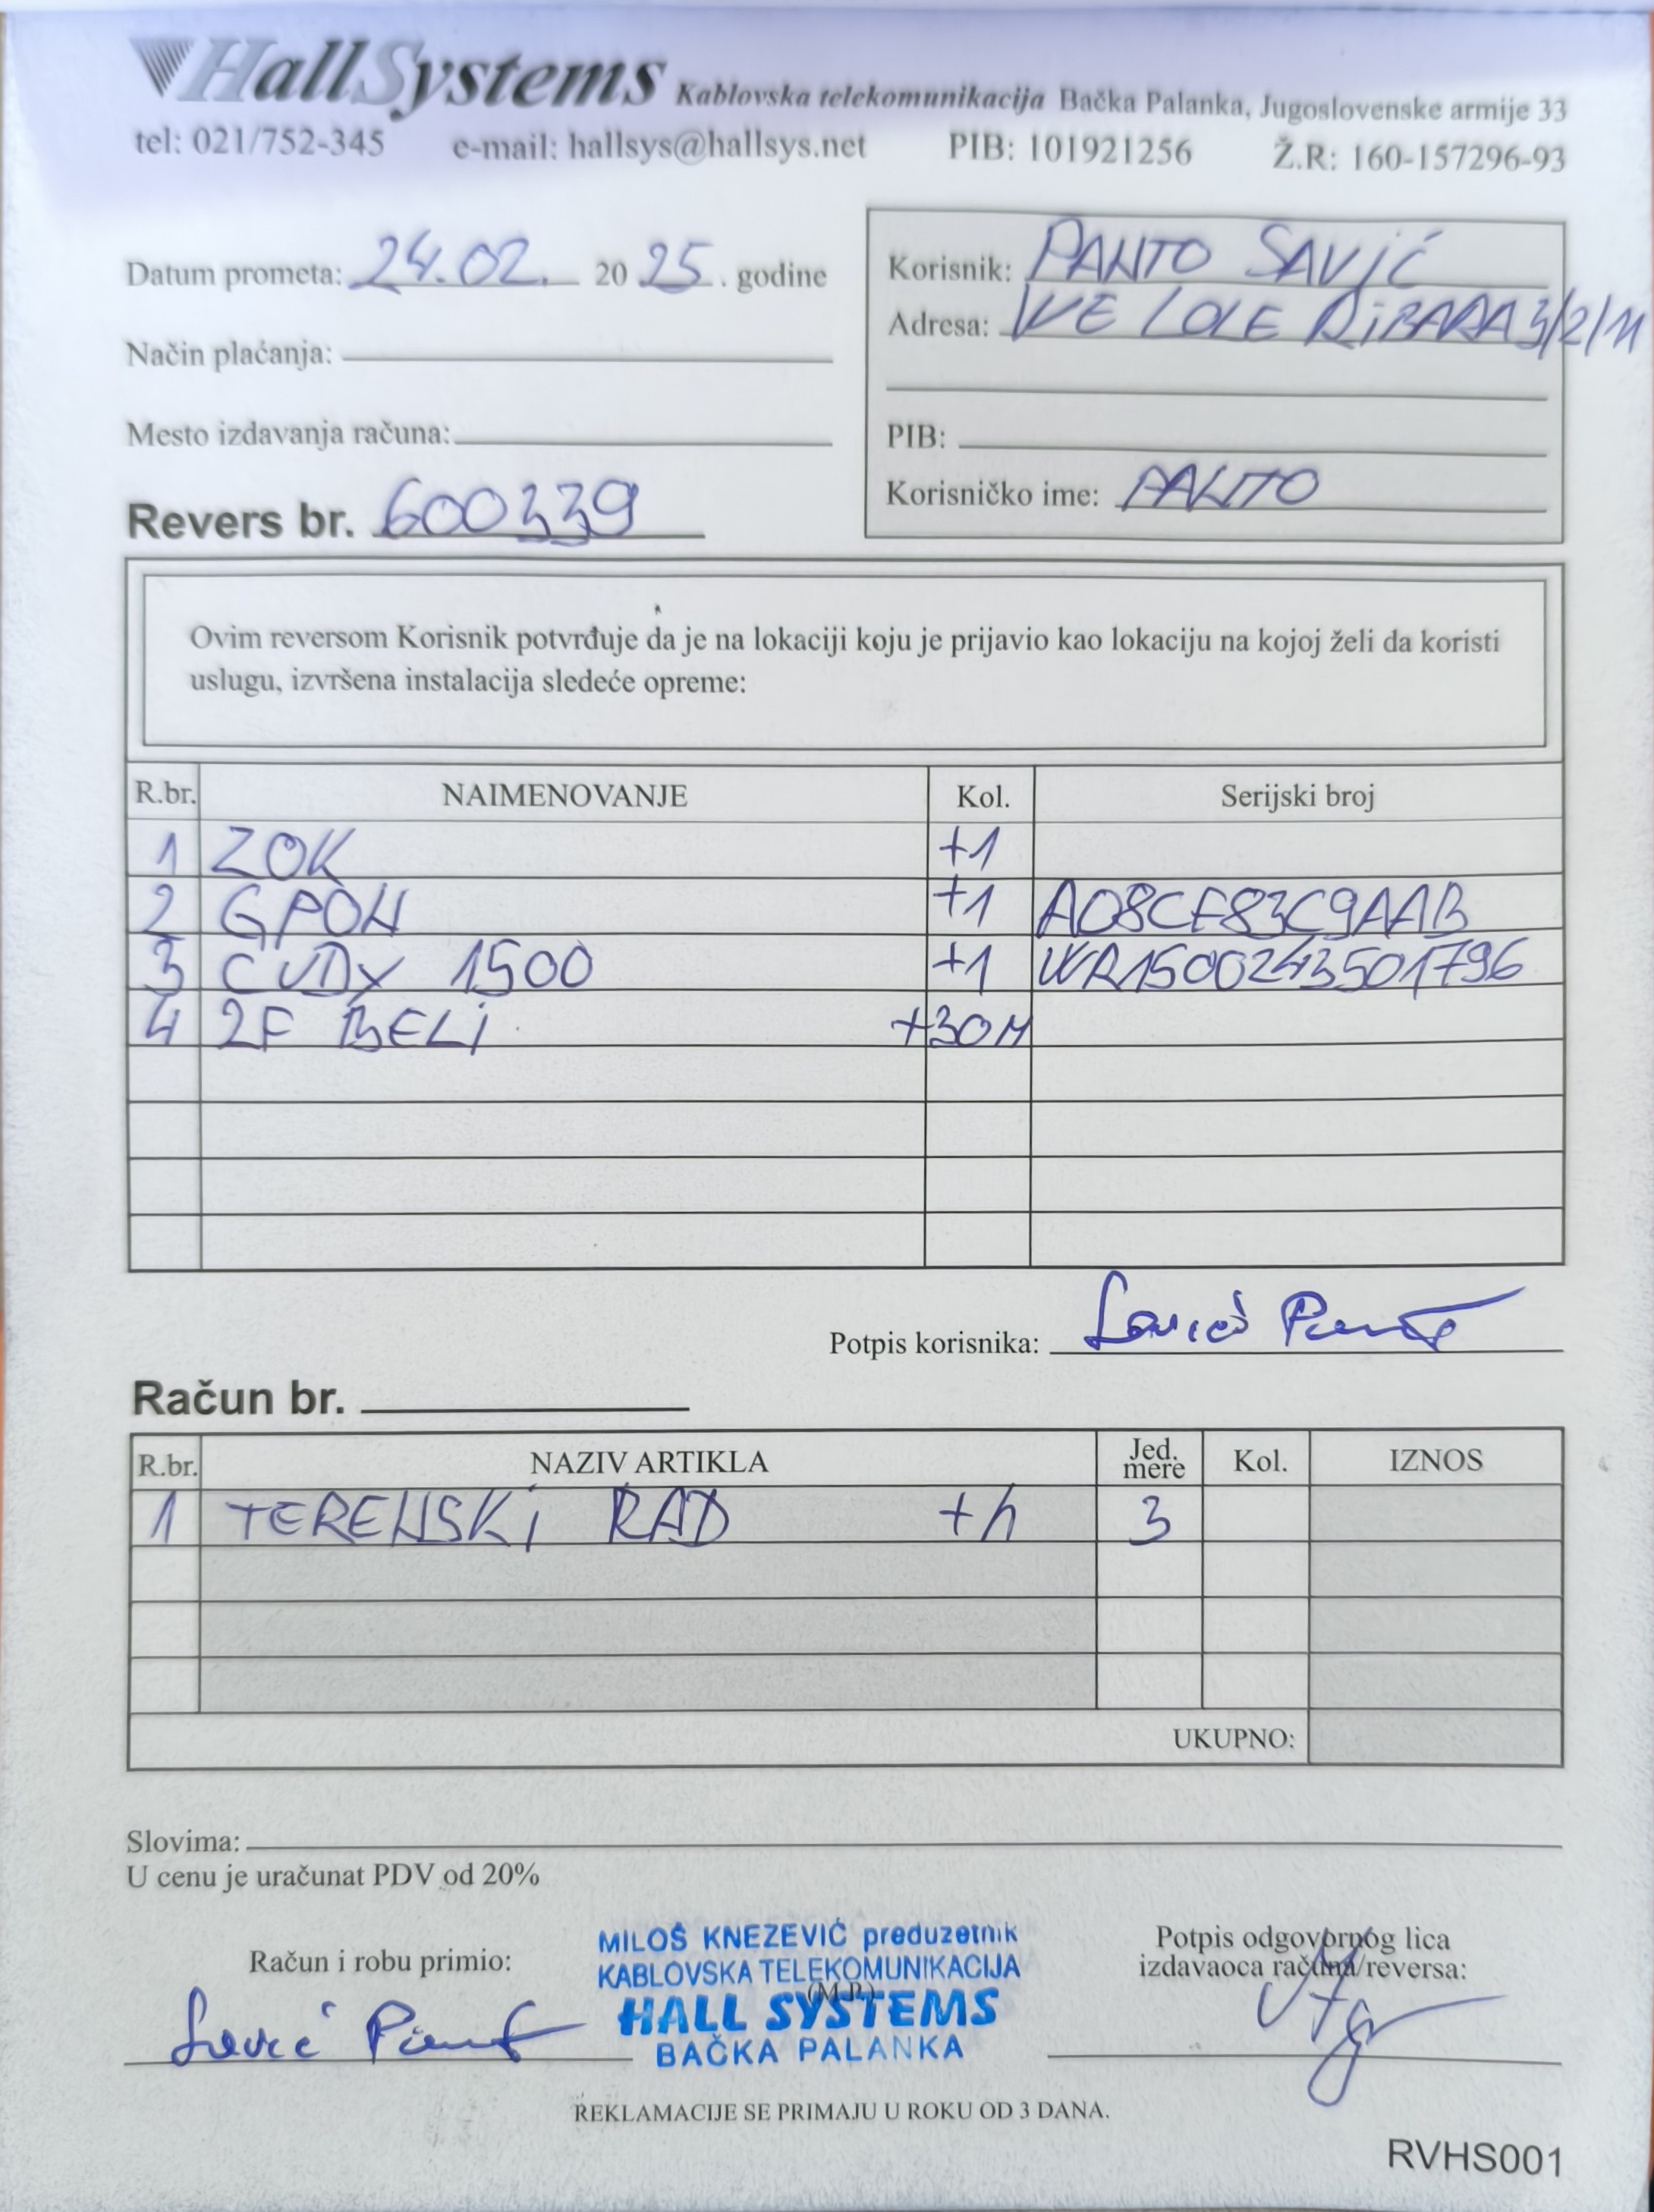 HallSystems Kablovska telekomunikacija Bačka Palanka, Jugoslovenske armije 33
tel: 021/752-345 e-mail: hallsys@hallsys.net PIB: 101921256 Ž.R: 160-157296-93
Datum prometa: 24.02. 20 25. godine
Način plaćanja:
Mesto izdavanja računa:
Revers br. 600339
Korisnik: PANTO SAVIĆ
Adresa: IVE LOLE RIBARA 3/2/11
PIB:
Korisničko ime: PANTO
Ovim reversom Korisnik potvrđuje da je na lokaciji koju je prijavio kao lokaciju na kojoj želi da koristi
uslugu, izvršena instalacija sledeće opreme:
R.br. NAIMENOVANJE Kol. Serijski broj
1 ZOK +1
2 GPON +1 A08CF83C9AAB
3 CUDY 1500 +1 WR1500243501796
4 2F BELI +30M
Potpis korisnika: Savić Panto
Račun br.
R.br. NAZIV ARTIKLA Jed. mere Kol. IZNOS
1 TERENSKI RAD +h 3
UKUPNO:
Slovima:
U cenu je uračunat PDV od 20%
Račun i robu primio:
Savić Panto
MILOŠ KNEZEVIĆ preduzetnik
KABLOVSKA TELEKOMUNIKACIJA
(M.P.)
HALL SYSTEMS
BAČKA PALANKA
Potpis odgovornog lica
izdavaoca računa/reversa:
REKLAMACIJE SE PRIMAJU U ROKU OD 3 DANA.
RVHS001